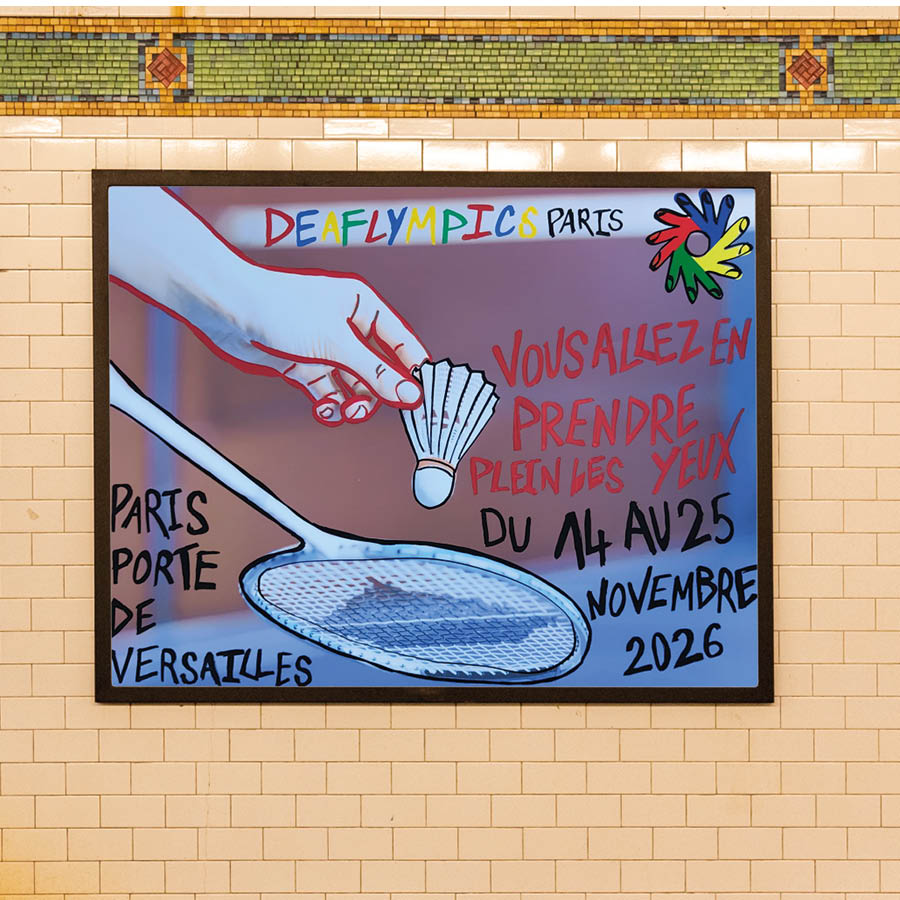 DEAFLYMPICS PARIS
VOUS ALLEZ EN
PRENDRE
PLEIN LES YEUX
DU 14 AU 25
NOVEMBRE
2026
PARIS
PORTE
DE
VERSAILLES